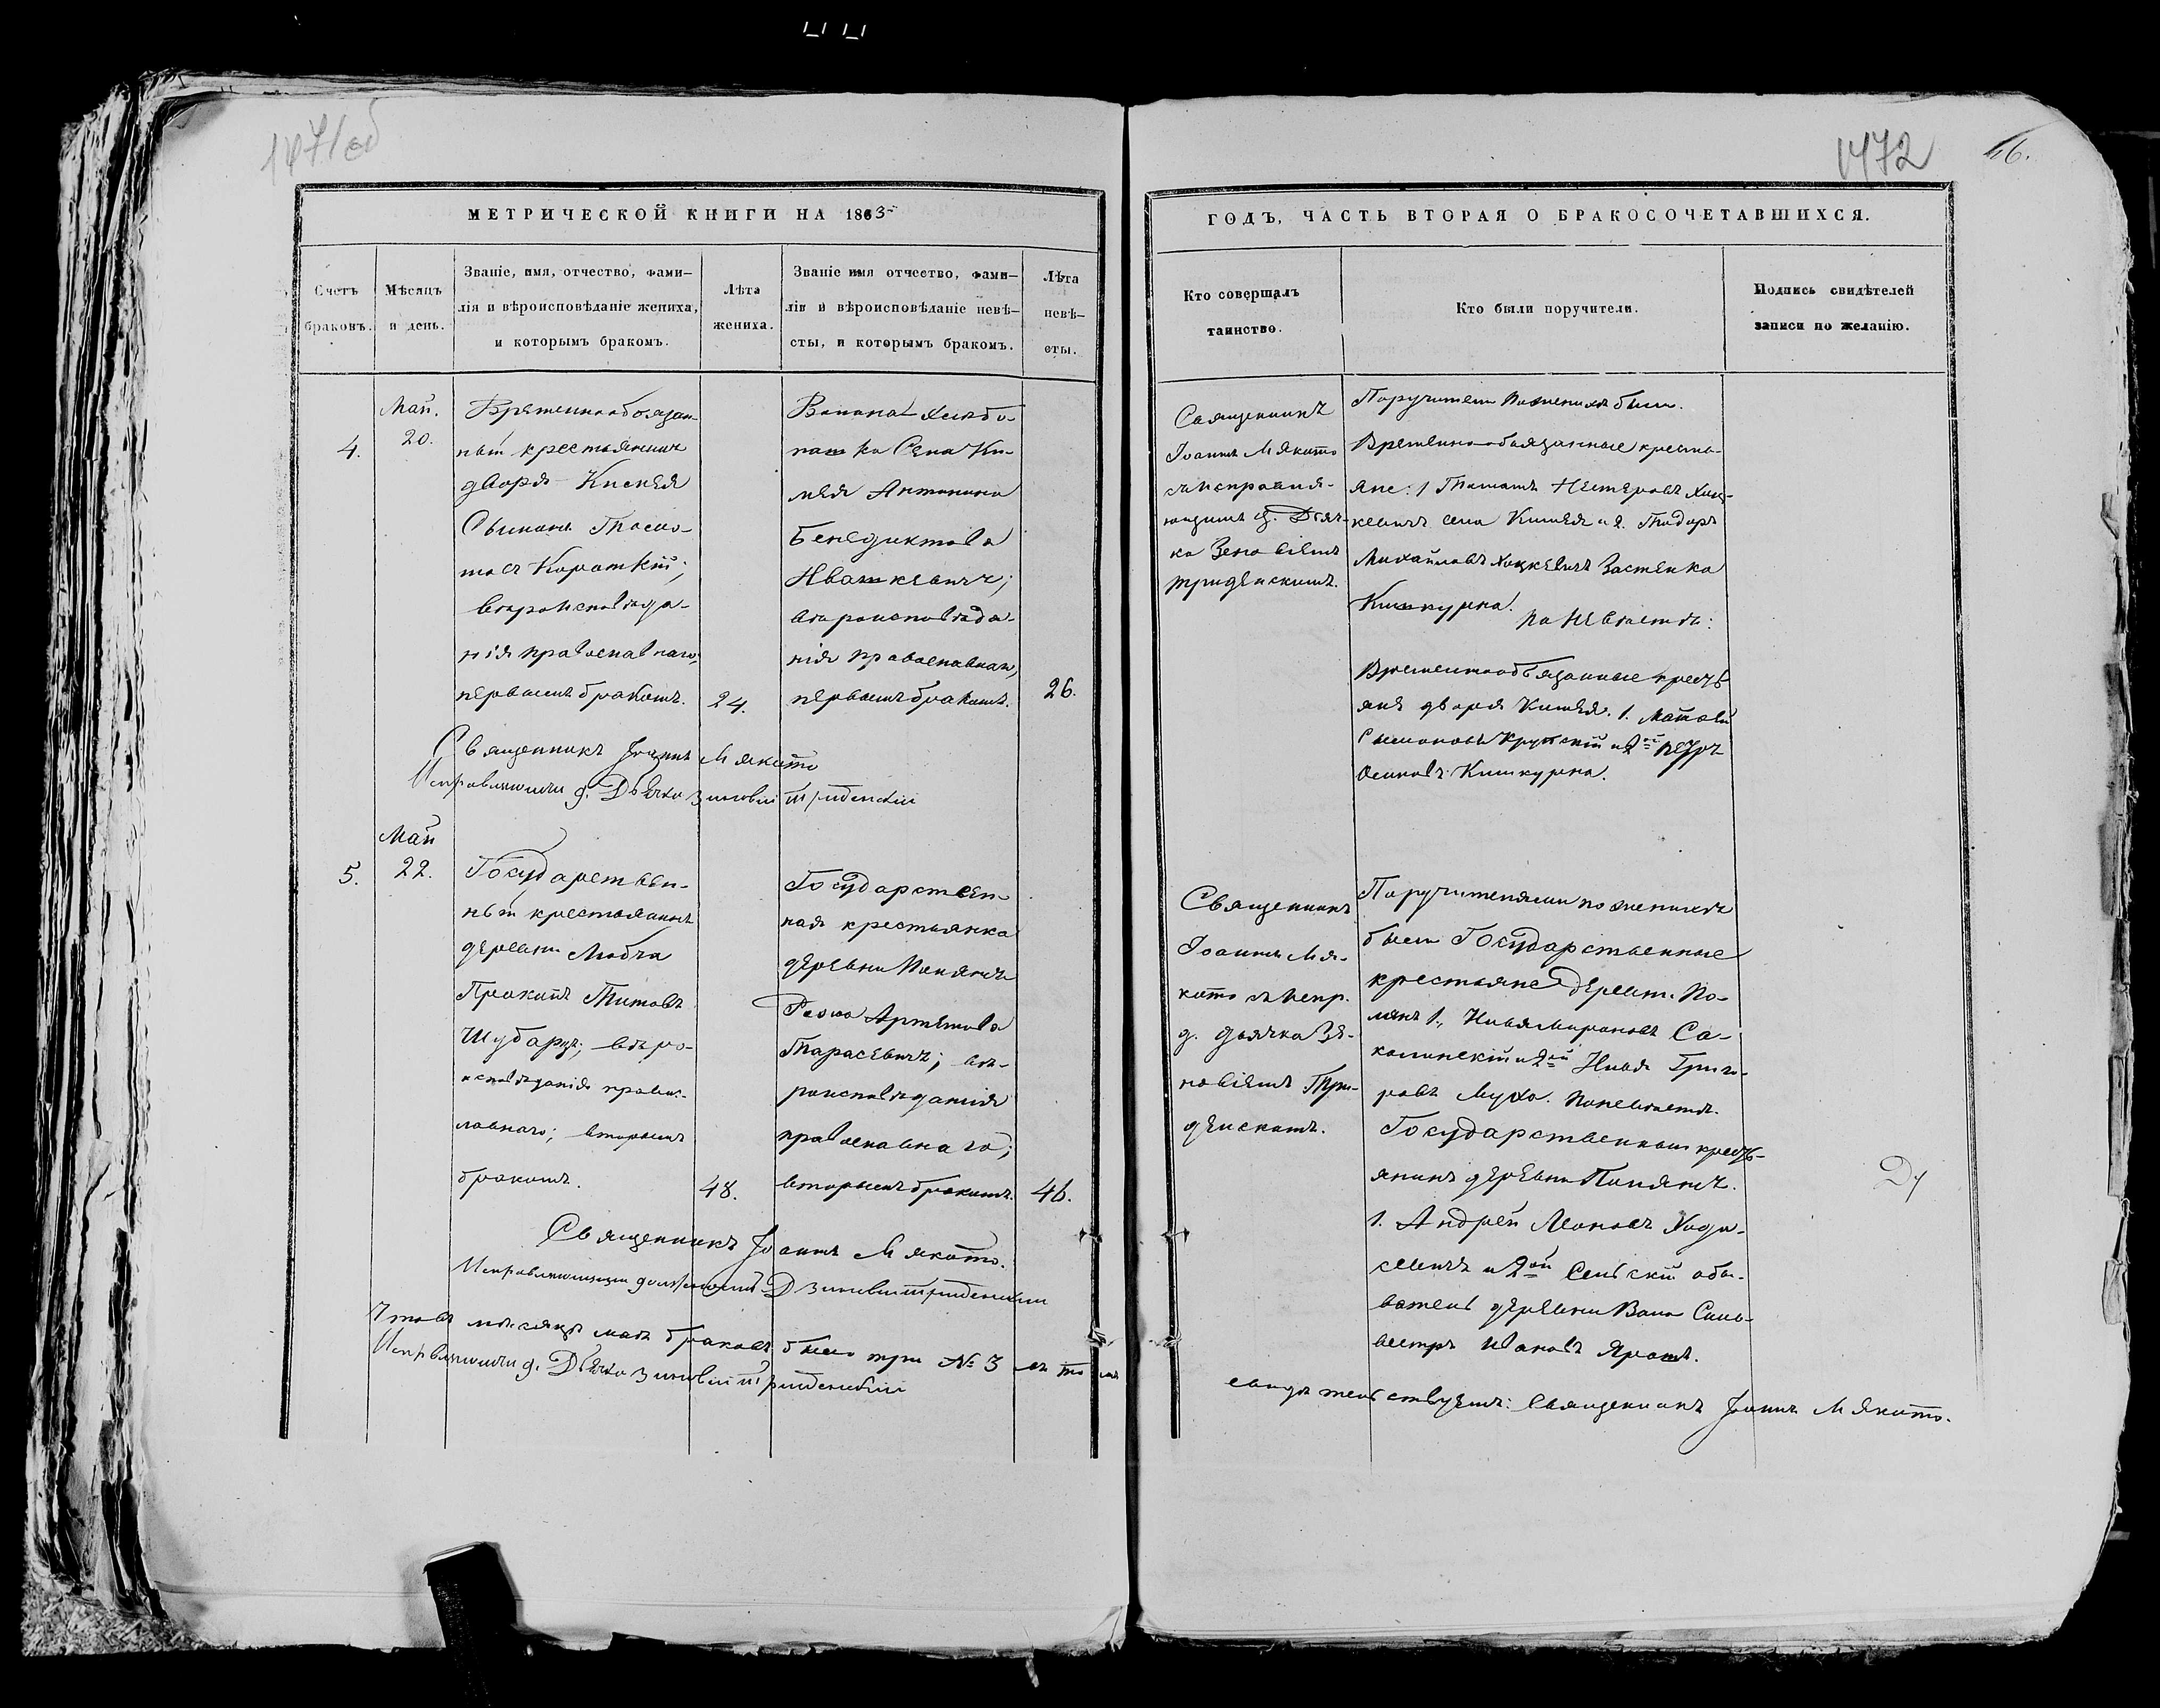 1471об
1472
46.
МЕТРИЧЕСКОЙ КНИГИ НА 1863
ГОДЪ, ЧАСТЬ ВТОРАЯ О БРАКОСОЧЕТАВШИХСЯ.
Счетъ
браковъ.
Мѣсяцъ
и день.
Званіе, имя, отчество, фами-
лія и вѣроисповѣданіе жениха,
и которымъ бракомъ.
Лѣта
жениха.
Званіе имя отчество, фами-
лія и вѣроисповѣданіе невѣ-
сты, и которымъ бракомъ.
Лѣта
невѣ-
сты.
Кто совершалъ
таинство.
Кто были поручители.
Подпись свидѣтелей
записи по желанію.
4.
Май.
20.
Временнообязан-
ный крестьянинъ
двора
Короткій;
вѣроисповѣда-
нія православнаго;
первымъ бракомъ.
24.
Села Ки-
мея Антонина
Бенедиктова
Ивашкевичъ;
вѣроисповѣда-
нія православнаго,
первымъ бракомъ.
26.
Священникъ
Іоаннъ Мякото
съ исправля-
ющимъ д. Дьяч-
ка Зеновіемъ
Тридѣнскимъ.
Поручители по женихѣ были.
Временно-обязанные кресть-
яне: 1 Нестеровъ Хац-
кевичъ села и 2. Тодоръ
Михайловъ Хацкевичъ Застенка
Кишкурна. по невѣстѣ:
Временнообязанные кресть
яне двора 1. Матвѣй
Сымоновъ Крупскій и 2й Петръ
Осиповъ Кишкурна.
Священникъ Іоаннъ Мякото
Исправляющій д. Дьячка Зиновій Триденскій
5.
Май
22.
Государствен-
ный крестьянинъ
деревни Любча
Прокопъ Титовъ
Шубарцъ; вѣро-
исповѣданія правос-
лавнаго; вторымъ
бракомъ.
48.
Государствен-
ная крестьянка
деревни
Артемова
Тарасевичъ; вѣ-
роисповѣданія
православнаго;
вторымъ бракомъ.
46.
Священникъ
Іоаннъ Мя-
кото съ испр.
д. дьячка Зе-
новіемъ Три-
денскимъ.
Поручителями по женихѣ
были Государственные
крестьяне деревн. По-
лянъ 1., Илья Мироновъ Са-
калинскій и 2й Илья Григо-
ровъ Муха. По невѣстѣ.
Государственный кресть-
янинъ деревни
1. Андрей Леоновъ Хода-
севичъ и 2ой Сельскій обы-
ватель деревни Силь-
вестръ Ивановъ Ярошъ.
Священникъ Іоаннъ Мякото.
Исправляющій должность Д Зиновій Триденскій
Что въ мѣсяцѣ маѣ браковъ было три № 3 въ томъ
свидѣтельствуемъ: Священникъ Іоаннъ Мякото.
Исправляющій д. Дьячка Зиновій Триденскій